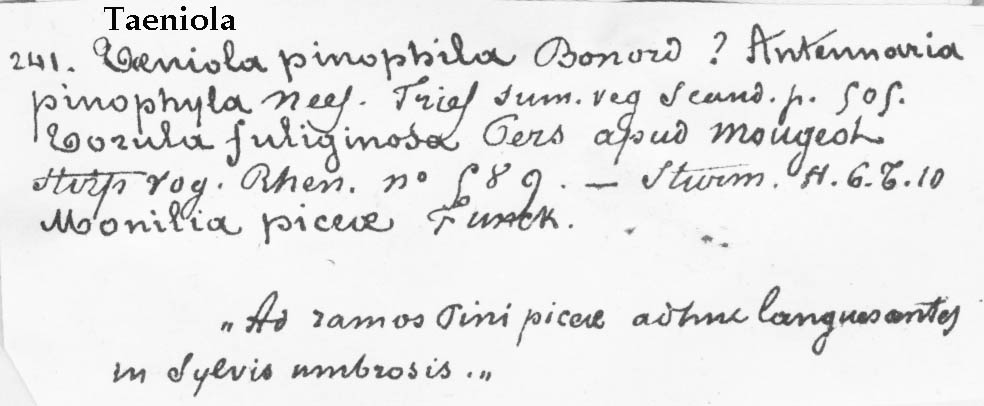 Taeniola
241. Tæniola pinophila Bonord ? Antennaria
pinophyla Nees. Fries sum. veg Scand. p. 505.
Torula fuliginosa Pers apud Mougeot
stirp vog. Rhen. n° 589. — Sturm. H. 6. T. 10
Monilia piceæ Funck.
„Ad ramos Pini piceæ adhuc languesantes
in Sylvis umbrosis.„